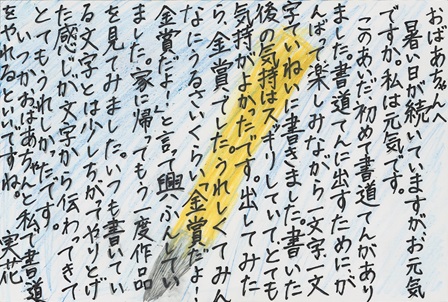 おばあちゃんへ
暑い日が続いていますが、お元気
ですか。私は元気です。
このあいだ初めて書道てんがあり
ました。書道てんに出すためにが
んばって楽しみながら一文字一文
字ていねいに書きました。書いた
後の気持はスッキリしていて、とても
気持がよかったです。出してみた
ら、金賞でした。うれしくてみん
なにうるさいくらい「金賞だよ!
金賞だよ!」と言って興ふんしてい
ました。家に帰ってもう一度作品
を見てみました。いつも書いてい
る文字とは少しちがってやりとげ
た感じが文字から伝わってきて
とてもうれしかったです。
いつかおばあちゃんと私で書道
をやれるといいですね。 実花